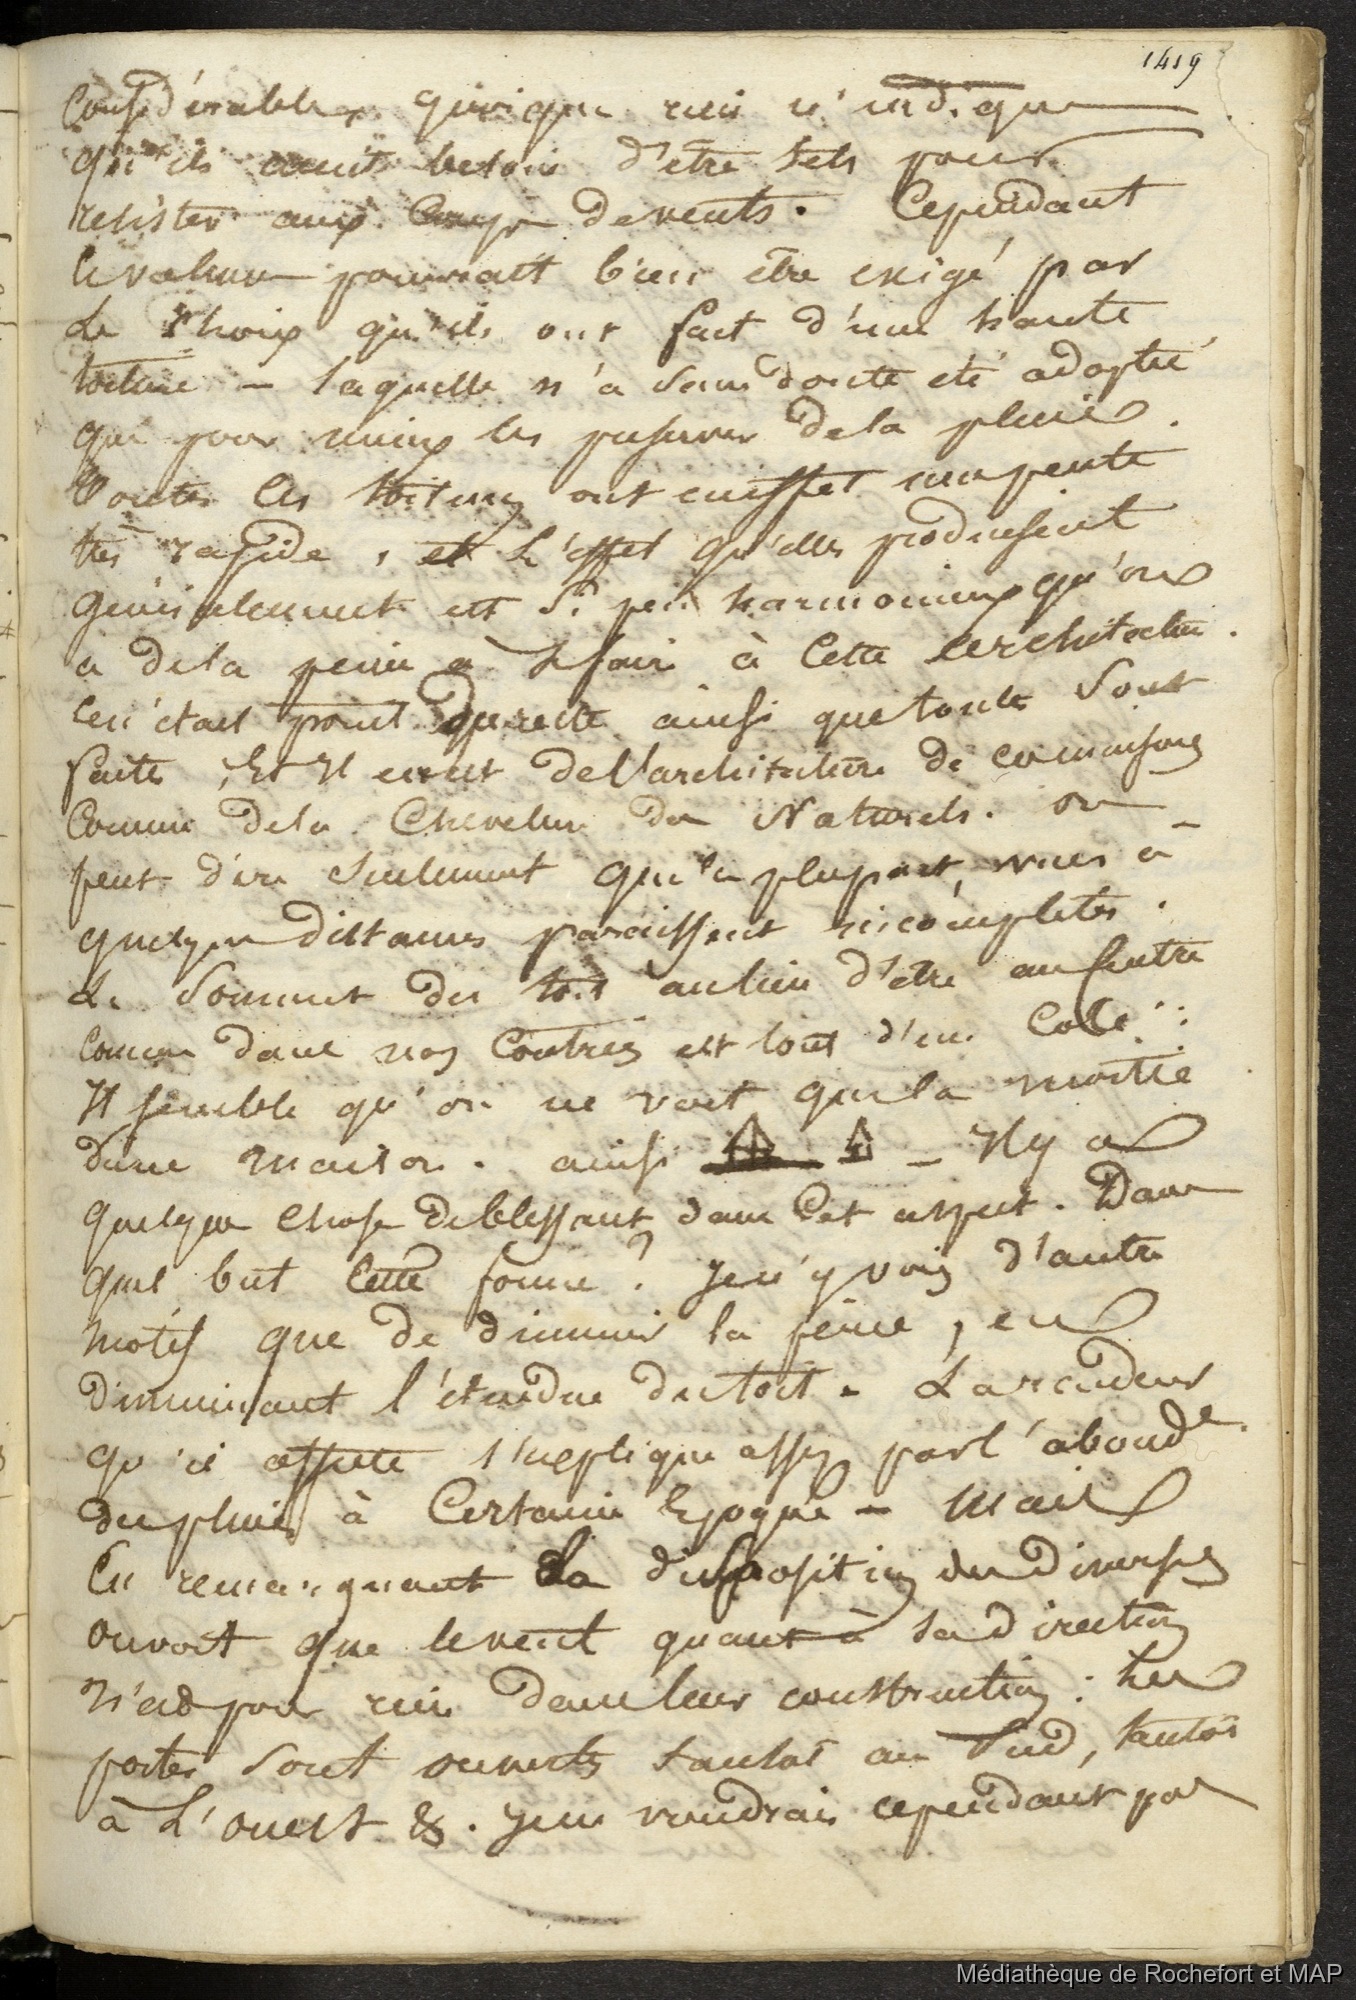 1419
Considérables quoique rien n'indique
qu'ils aient besoin d'être tels pour
resister aux Coups de vents. Cependant
le volume pourrait bien être exigé par
Le Choix qu'ils ont fait d'une haute
toiture - laquelle n'a sans doute été adoptée
que pour mieux les préserver de la pluie.
Toutes les toitures ont en effet une pente
très rapide, et L'effet qu'elles produisent
généralement est si peu harmonieux qu'on
a de la peine à se faire à Cette architecture.
Ce n'était point du reste ainsi que toutes sont
faites, Et Il en est de l'architecture de ces maisons
Comme de la Chevelure des Naturels. on
peut dire seulement que la plupart, vues à
quelque distance paraissent incomplètes.
Le Sommet du toit au lieu d'être au Centre
comme dans nos Contrées est tout d'un Coté:
Il semble qu'on ne voit que la moitié
d'une maison. ainsi - Il y a
quelque chose de blessant dans Cet aspect. Dans
quel but Cette forme? Je n'y vois d'autre
motif que de diminuer la peine, en
diminuant l'étendue du toit - La roideur
qu'il affecte s'explique assez par l'abonde
des pluies à Certaine Epoque - Mais
En remarquant La disposition des diverses
on voit que le vent quant à sa direction
n'est pour rien dans leur construction: Les
portes sont ouvertes tantôt au Sud, tantôt
à L'ouest &. Je ne voudrais cependant pas
Médiathèque de Rochefort et MAP